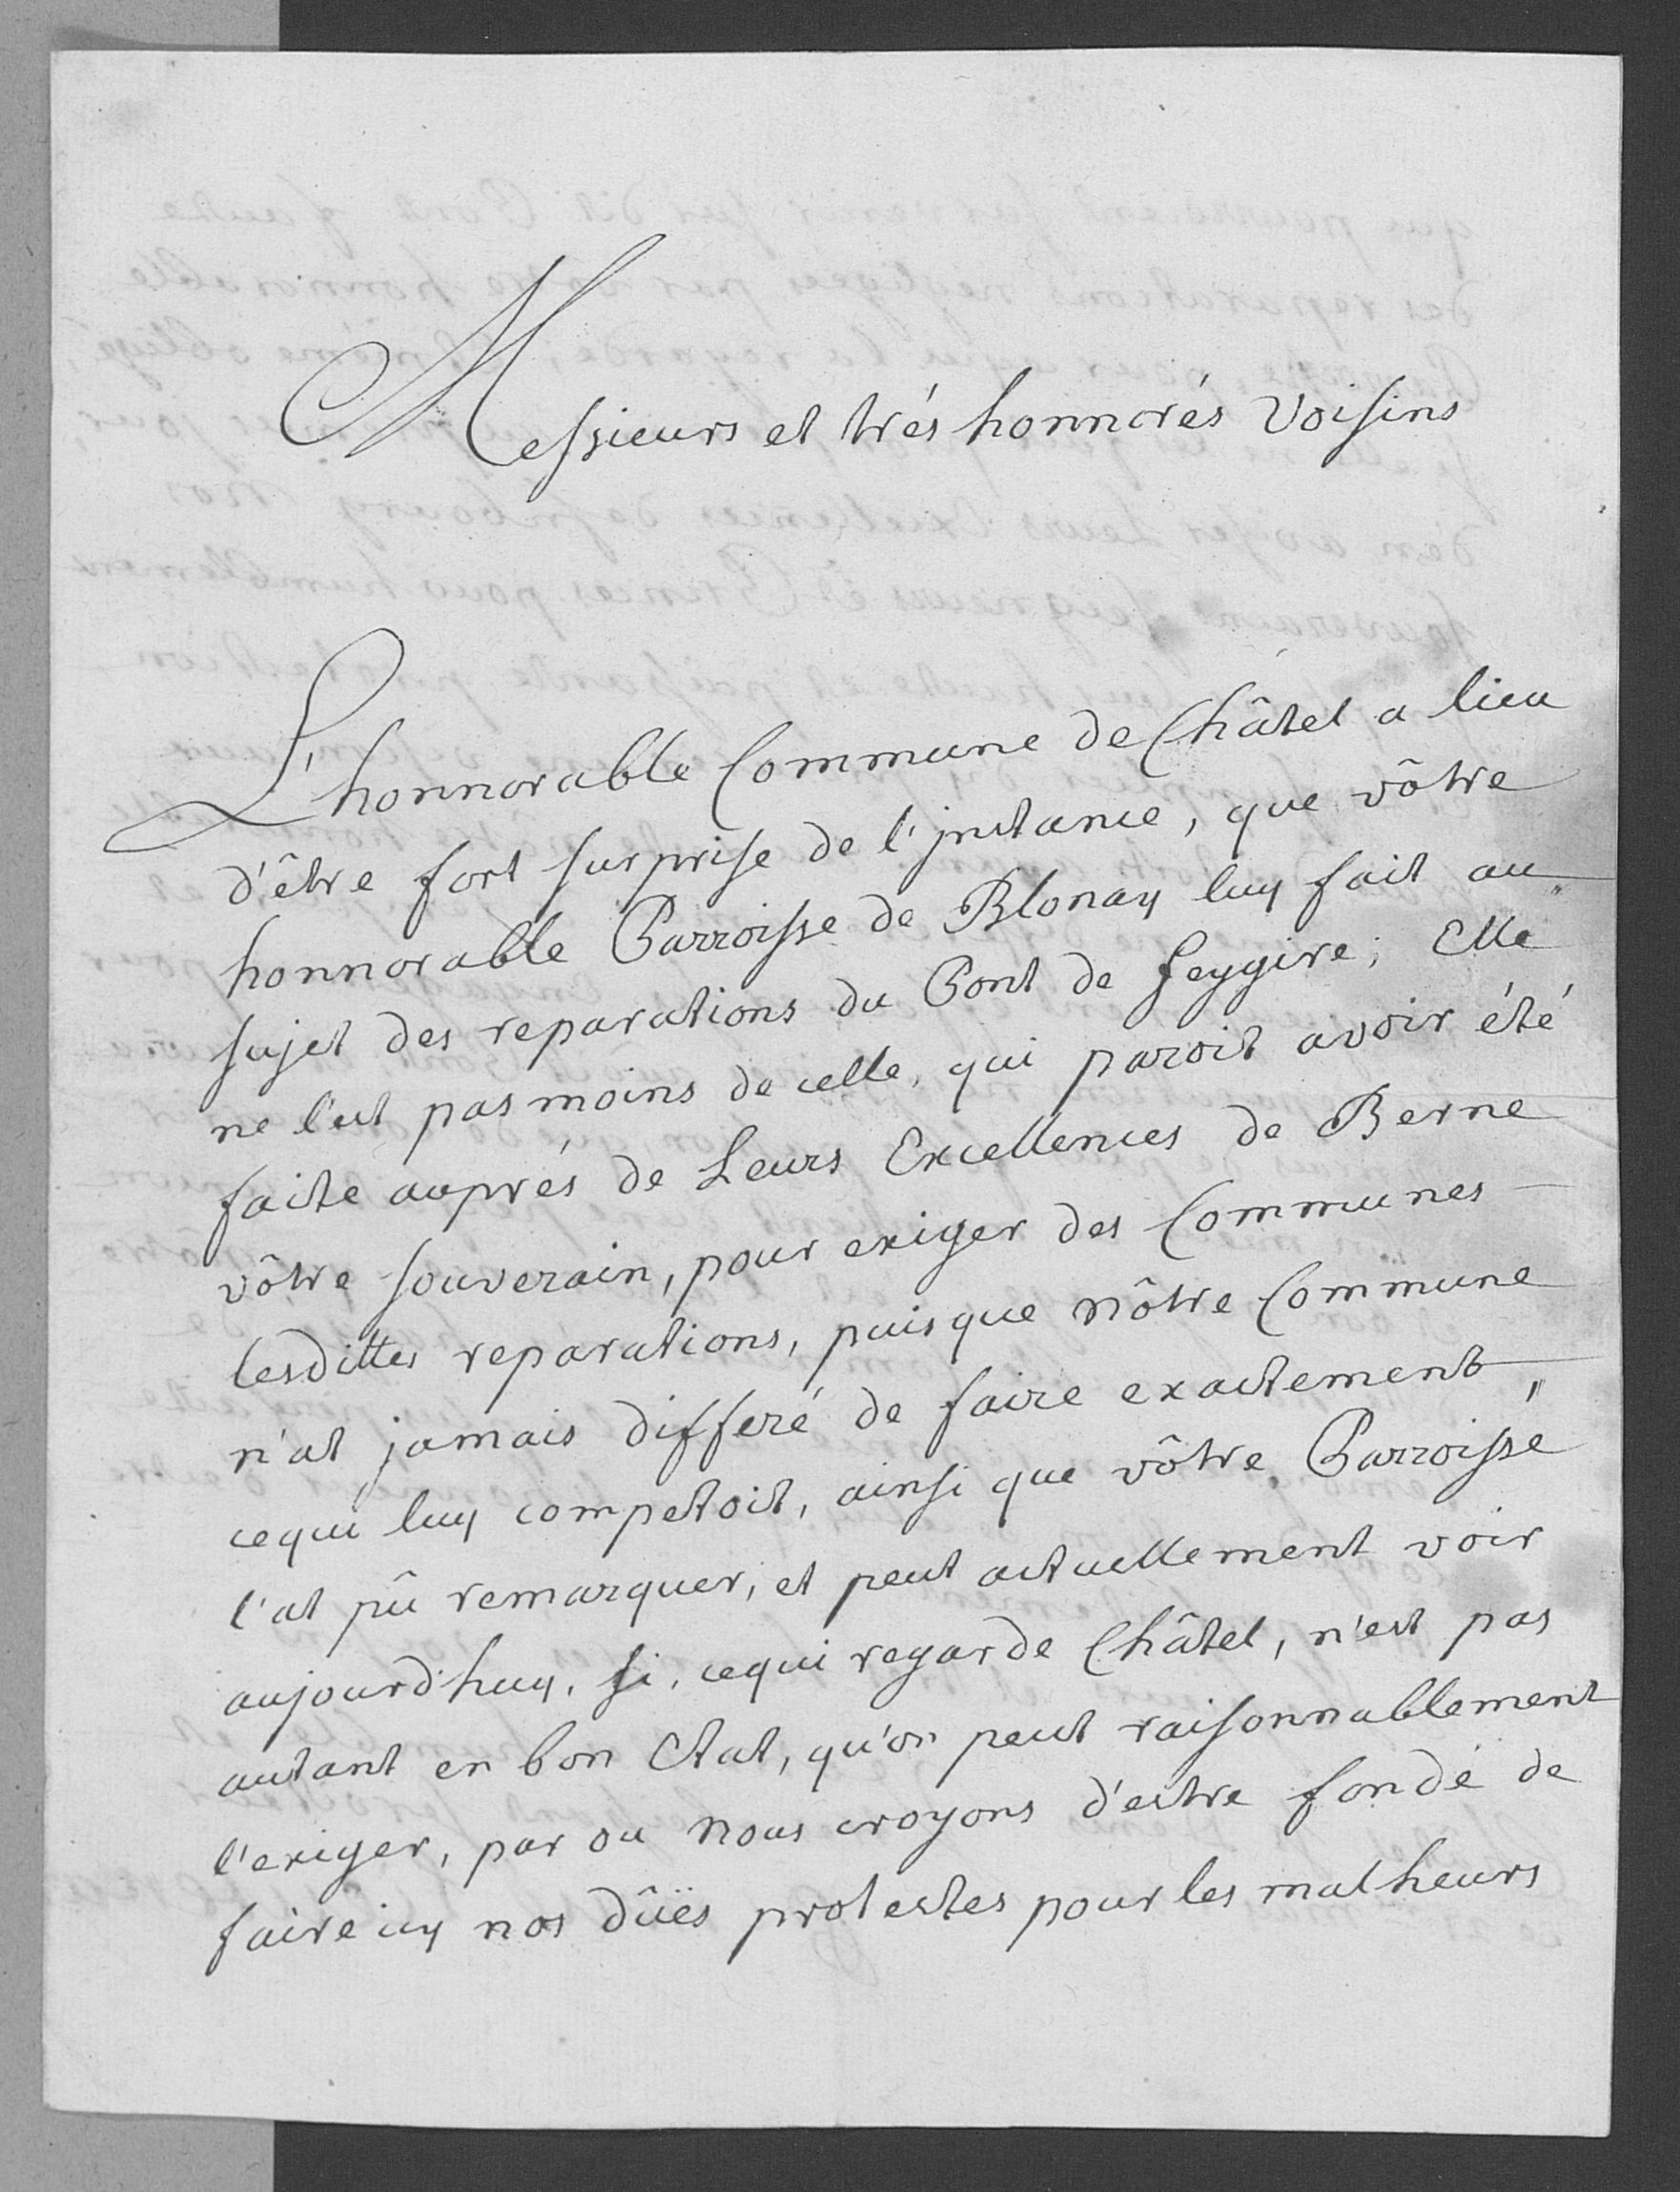 Messieurs et trés honnorés Voisins
L'honnorable Commune de Châtel a lieu
d'être fort surprise de l'jnstance, que vôtre
honnorable Parroisse de Blonay luy fait au
sujet des reparations du Pont de Feygire; Elle
ne l'est pas moins de celle, qui paroit avoir été
faite auprés de Leurs Excellences de Berne
vôtre souverain, pour exiger des Communes
lesdittes reparations, puisque nôtre Commune
n'at jamais differé de faire exactement
cequi luy competoit, ainsi que vôtre Parroisse
l'at pû remarquer, et peut actuellement voir
aujourd'huy, si, cequi regarde Châtel, n'est pas
autant en bon Etat, qu'on peut raisonnablement
l'exiger, par ou nous croyons d'estre fondé de
faire icy nos dûës protestes pour les malheurs